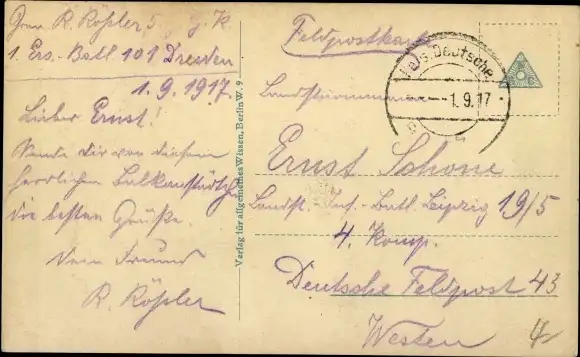 Gren. R. Rößler 5. g. K.
1. Ers.-Batl 101 Dresden
1.9.1917.
Lieber Ernst!
Sende dir von diesem
herrlichen
die besten Grüße.
Dein Freund
R. Rößler
Verlag für allgemeines Wissen, Berlin W. 9
Feldpostkarte
Deutsche
-1.9.17
Landsturmmann
Ernst Schöne
Landst.-Inf.-Batl. Leipzig 19/5
4. Komp.
Deutsche Feldpost 43
Westen